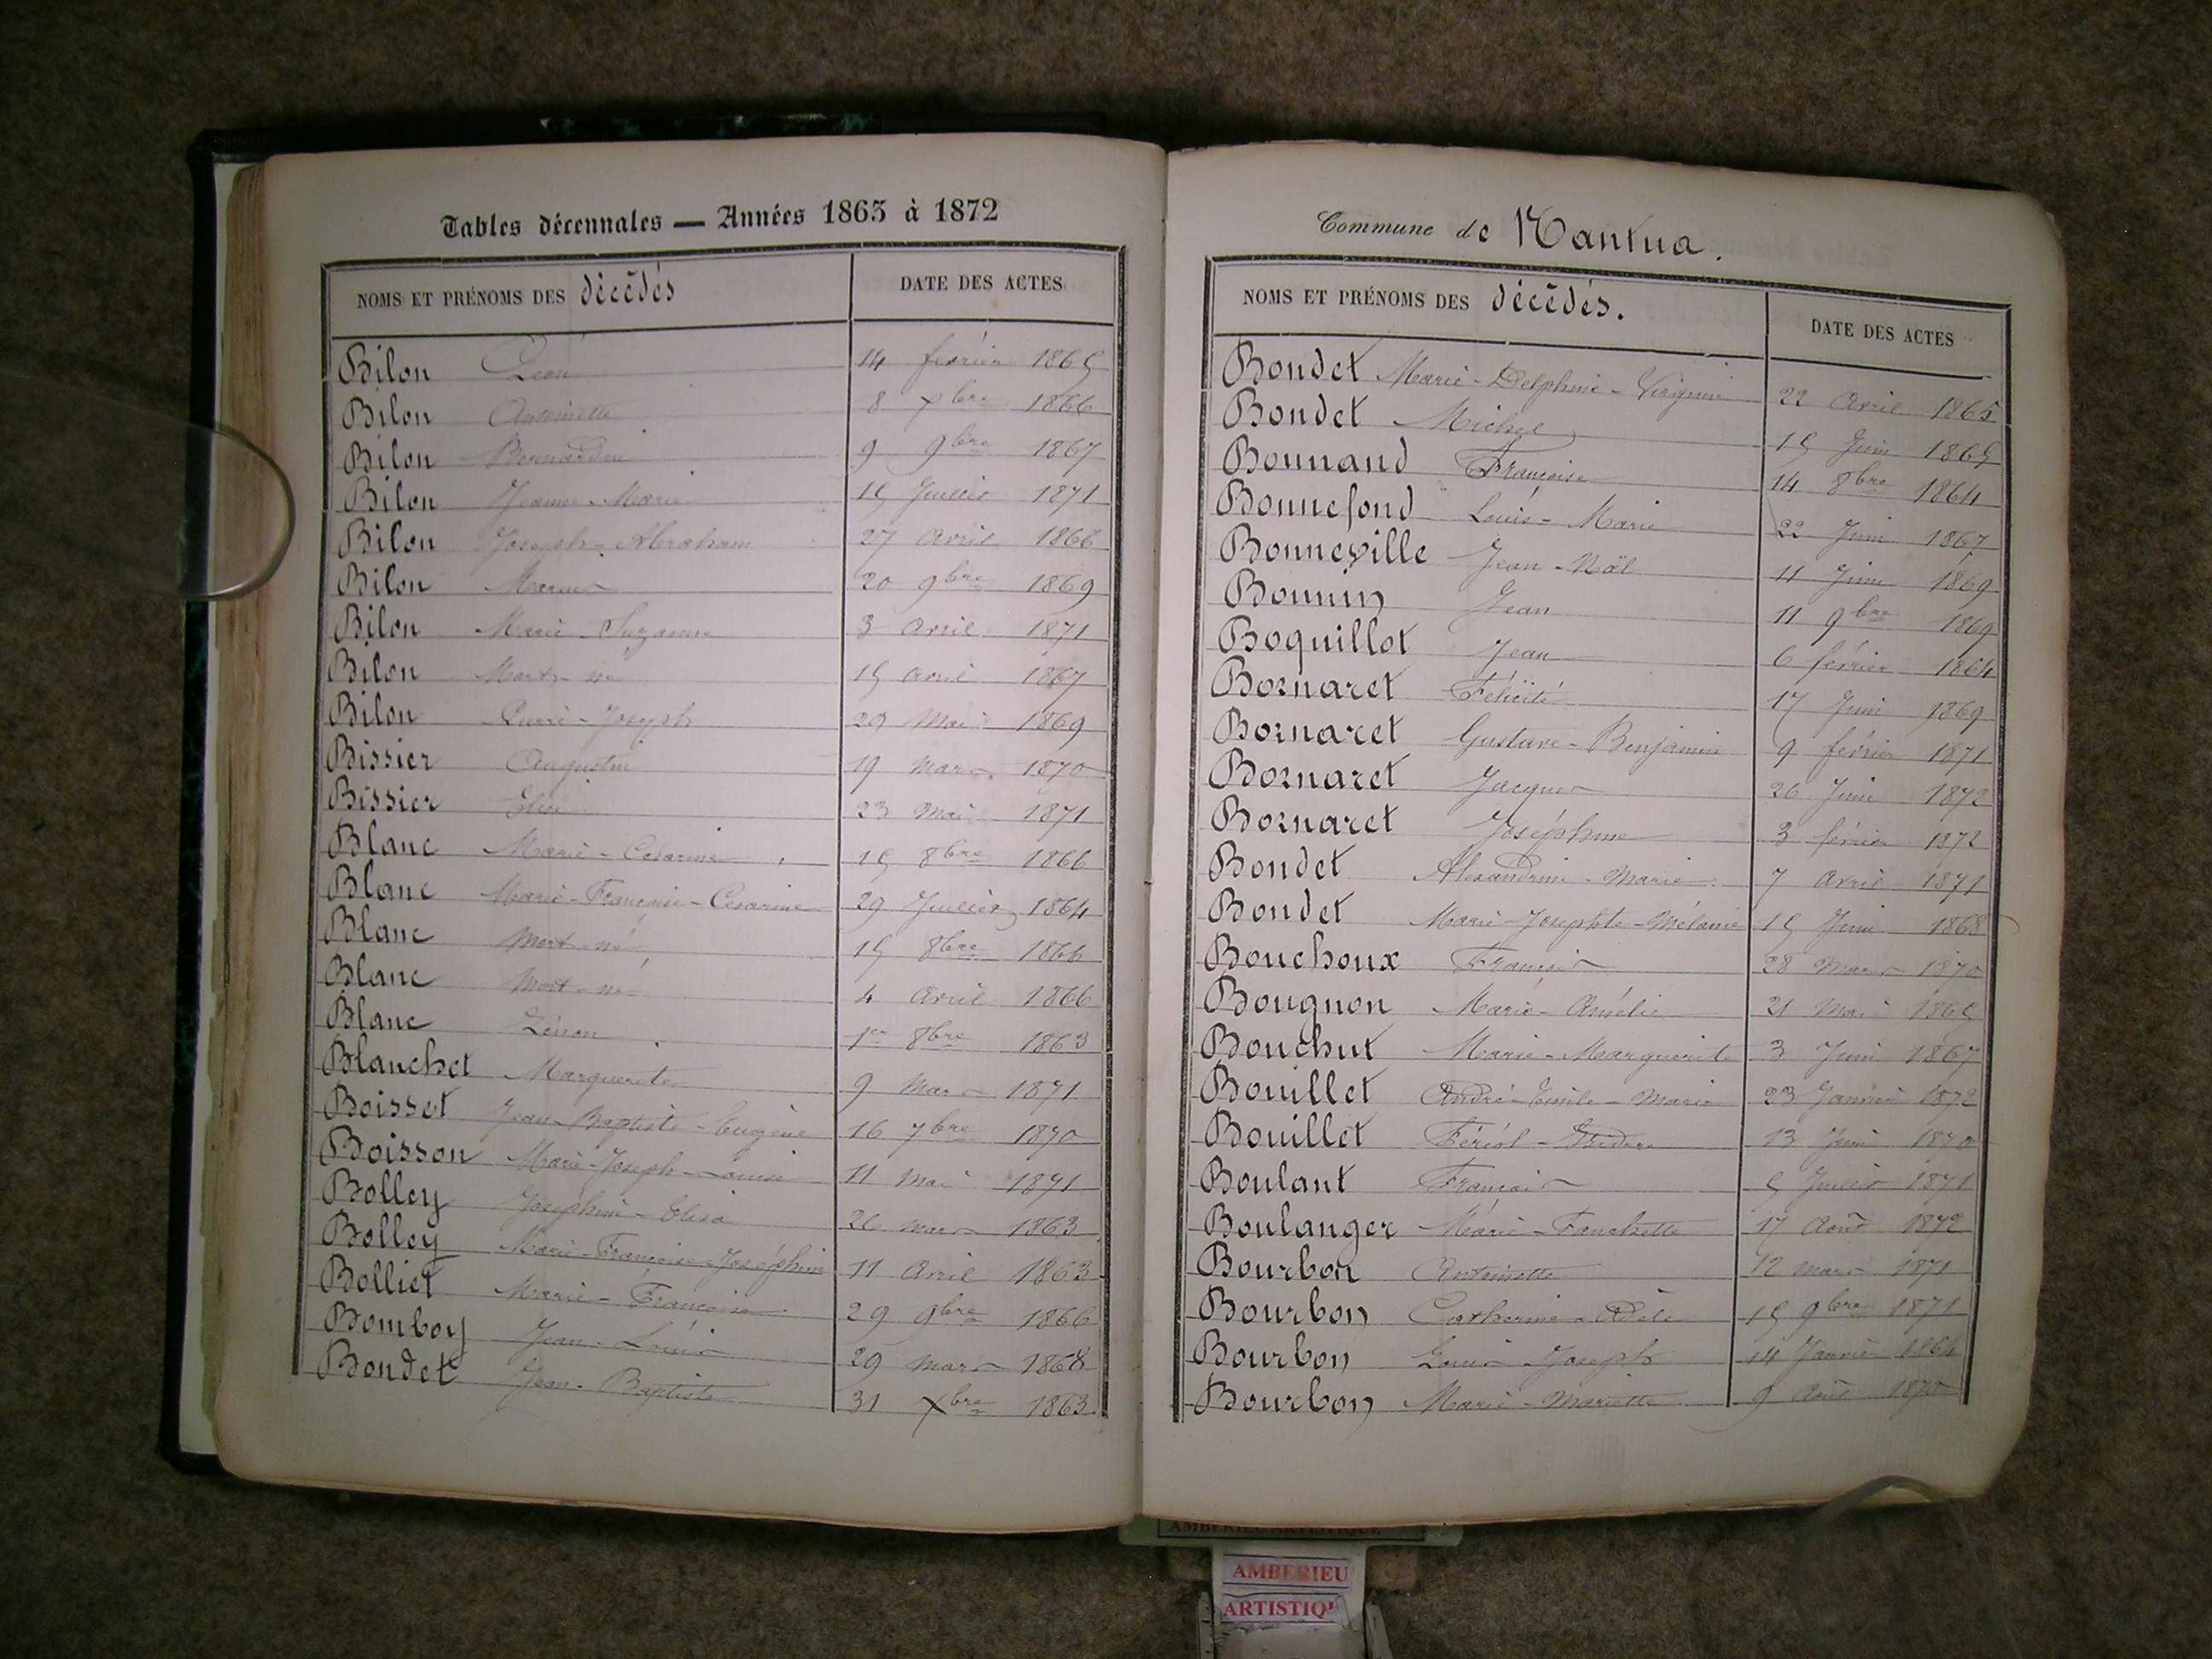 Tables décennales — Années 1863 à 1872
NOMS ET PRÉNOMS DES décédés DATE DES ACTES
Bilon Léon 14 février 1865
Bilon Antoinette 8 xbre 1866
Bilon Bernardin 9 9bre 1867
Bilon Jeanne-Marie 15 Juillet 1871
Bilon Joseph-Abraham 27 avril 1866
Bilon Marius 20 9bre 1869
Bilon Marie-Suzanne 3 avril 1871
Bilon Mort-né 15 avril 1867
Bilon Pierre-Joseph 29 Mai 1869
Bissier Augustin 19 mars 1870
Bissier 23 Mai 1871
Blanc Marie-Césarine 15 8bre 1866
Blanc Marie-Françoise-Césarine 29 Juillet 1864
Blanc Mort-né 15 8bre 1866
Blanc Mort-né 4 avril 1866
Blanc Zénon 1er 8bre 1863
Blanchet Marguerite 9 Mars 1871
Boisset Jean-Baptiste-Eugène 16 7bre 1870
Boisson Marie-Joseph-Louise 11 Mai 1871
Bolley Joséphine-Elisa 26 mars 1863
Bolley Marie-Françoise-Joséphine 11 Avril 1863
Bolliet Marie-Françoise 29 9bre 1866
Bomboy Jean-Louis 29 Mars 1868
Bondet Jean-Baptiste 31 xbre 1863
Commune de Nantua.
NOMS ET PRÉNOMS DES décédés. DATE DES ACTES
Bondet Marie-Delphine-Virginie 22 Avril 1865
Bondet Michel 15 Juin 1865
Bonnand Françoise 14 8bre 1864
Bonnefond Louis-Marie 22 Juin 1867
Bonneville Jean-Noël 11 Juin 1869
Bonnin Jean 11 9bre 1869
Boquillot Jean 6 février 1864
Bornaret Félicité 17 Juin 1869
Bornaret Gustave-Benjamin 9 février 1871
Bornaret Jacques 26 Juin 1872
Bornaret Joséphine 3 février 1872
Bondet Alexandrine-Marie 7 avril 1871
Bondet Marie-Josephte-Mélanie 15 Juin 1868
Bouchoux François 28 Mars 1870
Bougnon Marie-Amélie 21 Mai 1865
Bouchut Marie-Marguerite 3 Juin 1867
Bouillet André-Emile-Marie 23 Janvier 1872
Bouillet Féréol-Isidore 13 Juin 1870
Boulant François 5 Juillet 1871
Boulanger Marie-Fanchette 17 Août 1872
Bourbon Antoinette 12 mars 1871
Bourbon Catherine-Adèle 15 9bre 1871
Bourbon Louis-Joseph 14 Janvier 1864
Bourbon Marie-Mariette 9 Août 1870
AMBERIEU ARTISTIQUE
AMBERIEU
ARTISTIQU